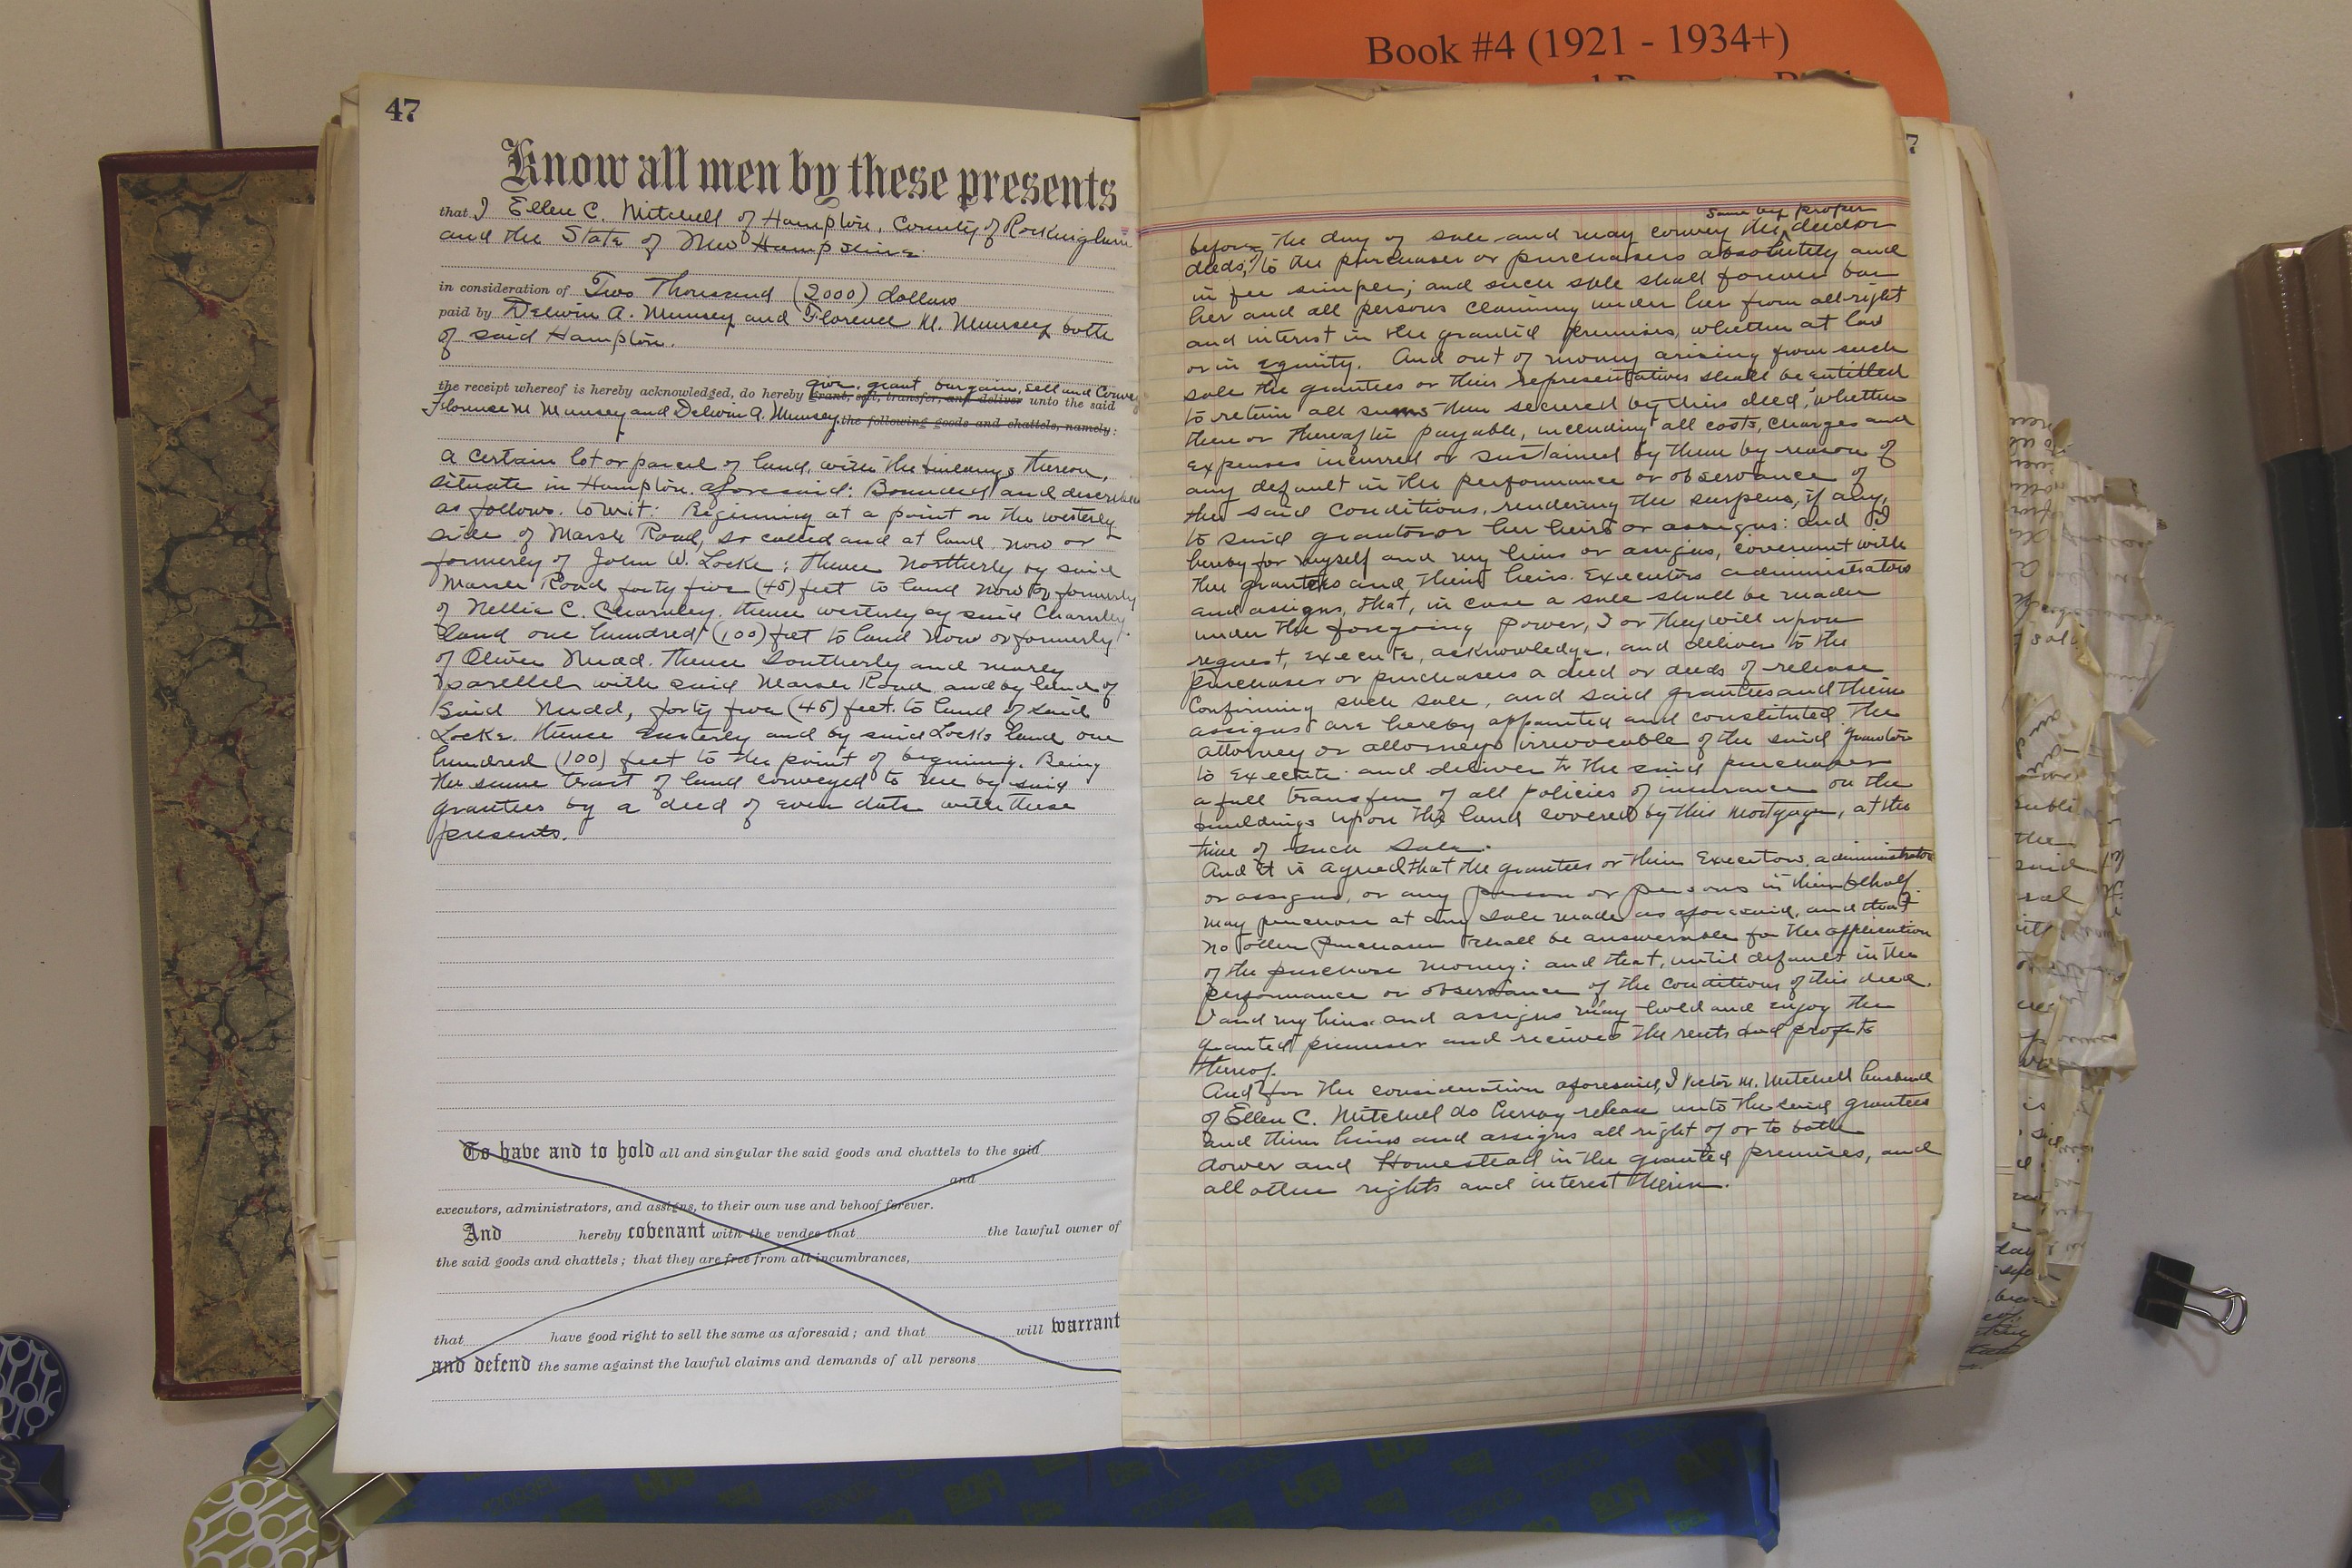 Book #4 (1921 - 1934+)
47
Know all men by these presents
that I Ellen C. Mitchell of Hampton, County of Rockingham
and the State of New Hampshire.
in consideration of Two Thousand (2000) dollars
paid by Delwin A. Munsey and Florence M. Munsey both
of said Hampton.
give, grant, bargain, sell and Convey
the receipt whereof is hereby acknowledged, do hereby grant, sell, transfer, and deliver unto the said
Florence M Munsey and Delwin A. Munsey the following goods and chattels, namely:
a certain lot or parcel of land, with the buildings thereon,
situate in Hampton, aforesaid: Bounded and described
as follows. to wit: Beginning at a point on the westerly
side of Marsh Road, so called and at land now or
formerly of John W. Locke; thence Northerly by said
Marsh Road forty five (45) feet to land now or formerly
of Nellie C. Charnley. thence westerly by said Charnley
land one hundred (100) feet to land now or formerly
of Oliver Nudd. Thence Southerly and nearly
parellel with said Marsh Road and by land of
said Nudd, forty five (45) feet to land of said
Locke. thence Easterly and by said Locke land one
hundred (100) feet to the point of begining. Being
the same tract of land conveyed to me by said
grantees by a deed of even date with these
presents.
To have and to hold all and singular the said goods and chattels to the said
and
executors, administrators, and assigns, to their own use and behoof forever.
And hereby covenant with the vendee that the lawful owner of
the said goods and chattels; that they are free from all incumbrances,
that have good right to sell the same as aforesaid; and that will warrant
and defend the same against the lawful claims and demands of all persons
7
same by proper
before the day of sale and may convey the deed or
deeds, to the purchaser or purchasers absolutely and
in fee simper; and such sale shall forever bar
her and all persons claiming under her from all right
and interest in the granted premises, whether at law
or in equity. And out of money arising from such
sale the grantees or their representatives shall be entitled
to retain all sums then secured by this deed, whether
then or thereafter payable, including all costs, charges and
expenses incurred or sustained by them by reason of
any default in the performance or observance of
the said conditions, rendering the surpens, if any,
to said grantor or her heirs or assigns: and I
hereby for myself and my heirs or assigns, covenant with
the grantees and their heirs. Executors administrators
and assigns, that, in case a sale shall be made
under the foregoing power, I or they will upon
request, execute, acknowledge, and deliver to the
purchaser or purchasers a deed or deeds of release
confirming such sale, and said grantees and their
assigns are hereby appointed and constituted the
attorney or attorneys irrevocable of the said grantor
to execute and deliver to the said purchaser
a full transfer of all policies of insurance on the
buildings upon the land covered by this mortgage, at the
time of such sale.
And it is agreed that the grantees or their Executors, administrators
or assigns, or any person or persons in their behalf
may purchase at any sale made as aforesaid, and that
no other purchaser shall be answerable for the application
of the purchase money: and that, until default in the
performance or observance of the conditions of this deed.
I and my heirs and assigns may hold and enjoy the
granted premises and received the rents and profits
thereof.
And for the consideration aforesaid, I Victor M. Mitchell husband
of Ellen C. Mitchell do hereby release unto the said grantees
and their heirs and assigns all right of or to both
dower and Homestead in the granted premises, and
all other rights and interest therein.